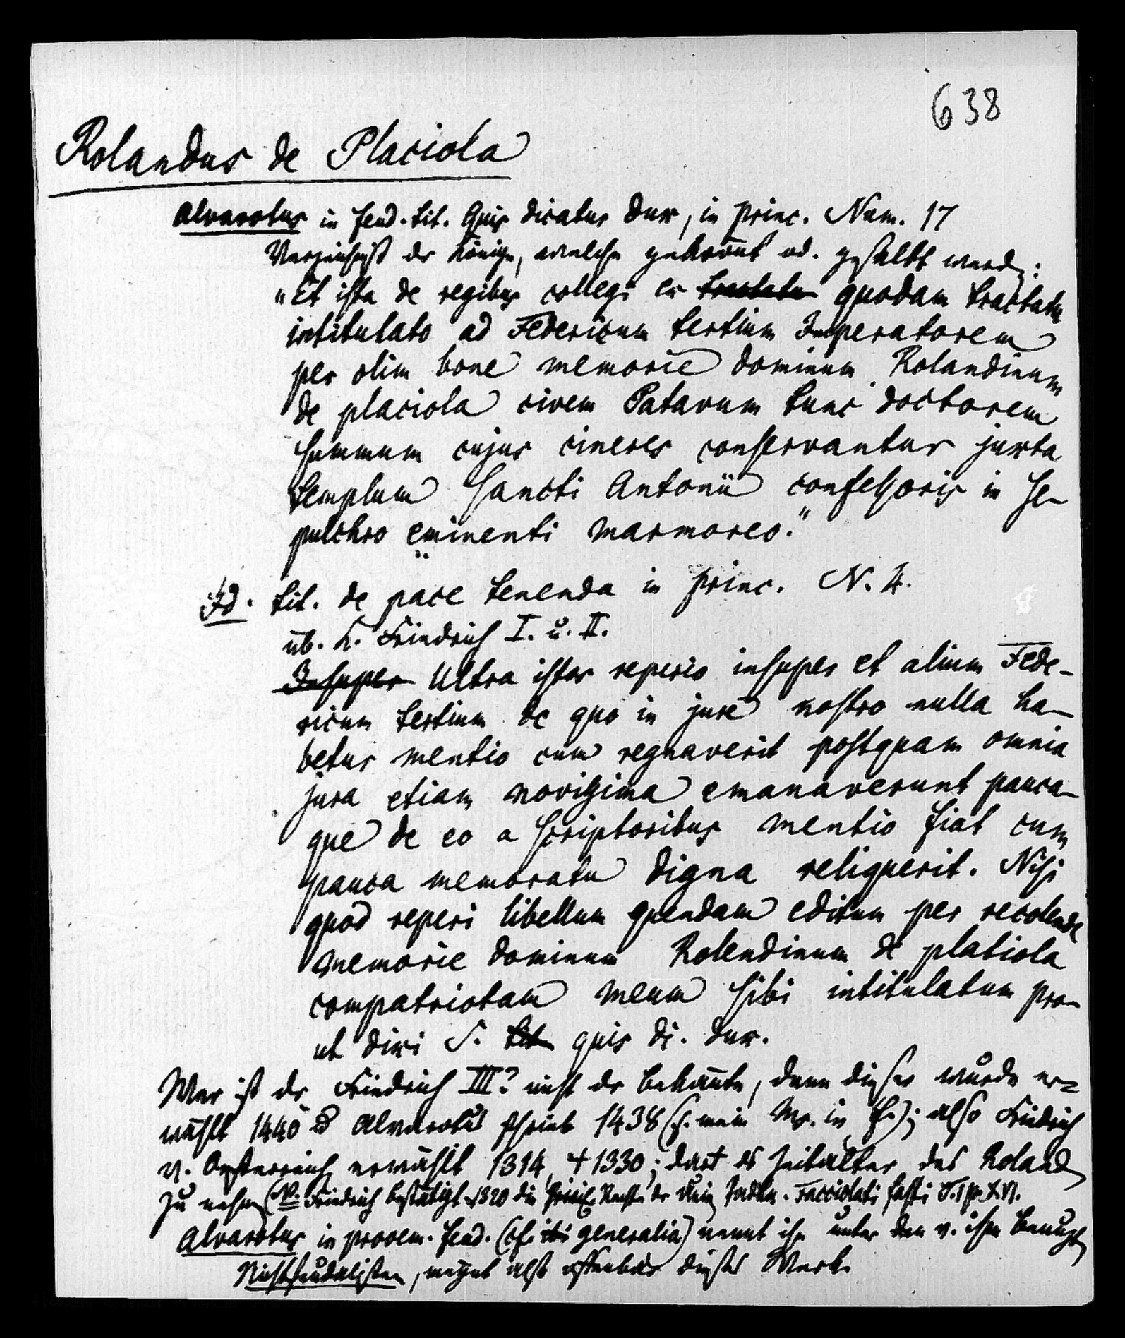 638
Rolandus de Placiola
Alvarotus in feud. tit. Quis dicatur dux, in princ. Num. 17
Verzeichniß der Könige, welche gekrönt od. gesalbt werden:
"Et ista de regibus collegi ex tractatu quodam tractatu
intitulato ad Federicum tertium Imperatorem
per olim bone memorie dominum Rolandinum
de placiola civem Patavum tunc doctorem
summum cujus cineres conservantur juxta
templum Sancti Antonii confessoris in se-
pulchro eminenti marmoreo."
Id. tit. de pace tenenda in princ. N. 4.
üb. K. Friedrich I. u. II.
Insuper Ultra istos reperio insuper et alium Fede-
ricum tertium de quo in jure nostro nulla ha-
betur mentio cum regnaverit postquam omnia
jura etiam novissima emanaverunt pauca-
que de eo a scriptoribus mentio fiat cum
pauca memoratu digna reliquerit. Nisi
quod reperi libellum quendam editum per recolende
memorie dominum Rolendinum de platiola
compatriotam meum sibi intitulatum pro-
ut dixi S. tit quis di. dux.
Wer ist der Friedrich III? nicht der bekannte, denn dieser wurde er=
wählt 1440 u Alvarotus schrieb 1438 (s. mein Ms. in f.); also Friedrich
v. Oesterreich erwählt 1314 + 1330; dort das Zeitalter des Roland
zu nehmen (NB. Friedrich bestätigt 1320 die Rechte der Univ. Padua. Facciolati fasti T. I pr. XVI.
Alvarotus in prooem. feud. (cf. ibi generalia) nennt ihn unter den v. ihm benuzten
Nichtfeudalisten, meynt also offenbar dieses Werk.